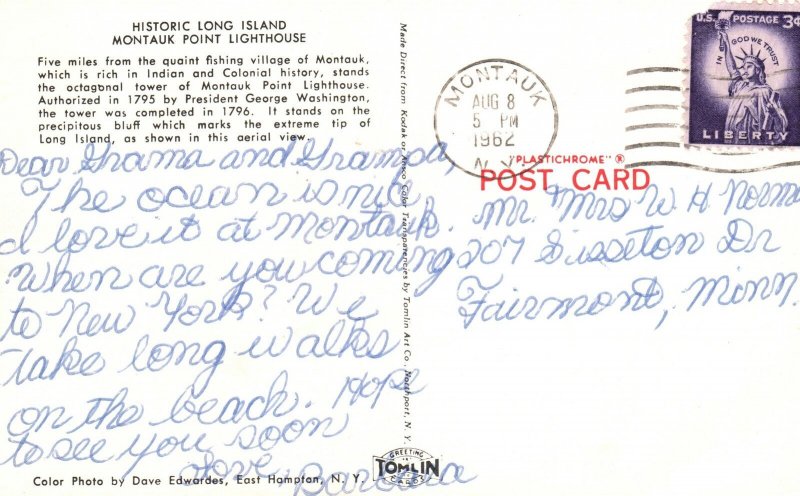 HISTORIC LONG ISLAND
MONTAUK POINT LIGHTHOUSE
Five miles from the quaint fishing village of Montauk,
which is rich in Indian and Colonial history, stands
the octagonal tower of Montauk Point Lighthouse.
Authorized in 1795 by President George Washington,
the tower was completed in 1796. It stands on the
precipitous bluff which marks the extreme tip of
Long Island, as shown in this aerial view.
Dear Grama and Grampa,
The ocean is nic
I love it at Montauk.
When are you coming
to New York? We
take long walks
on the beach. Hope
to see you soon
Love,
Barbara
Color Photo by Dave Edwardes, East Hampton, N. Y.
Made Direct from Kodak or Ansco Color Transparencies by Tomlin Art Co., Northport, N. Y.
GREETING
TOMLIN
CARDS
MONTAUK
AUG 8
5 PM
1962
N.Y.
U.S. POSTAGE 3¢
IN GOD WE TRUST
LIBERTY
"PLASTICHROME" ®
POST CARD
Mr. Mrs W H Norma
207 Sisseton Dr
Fairmont, Minn.